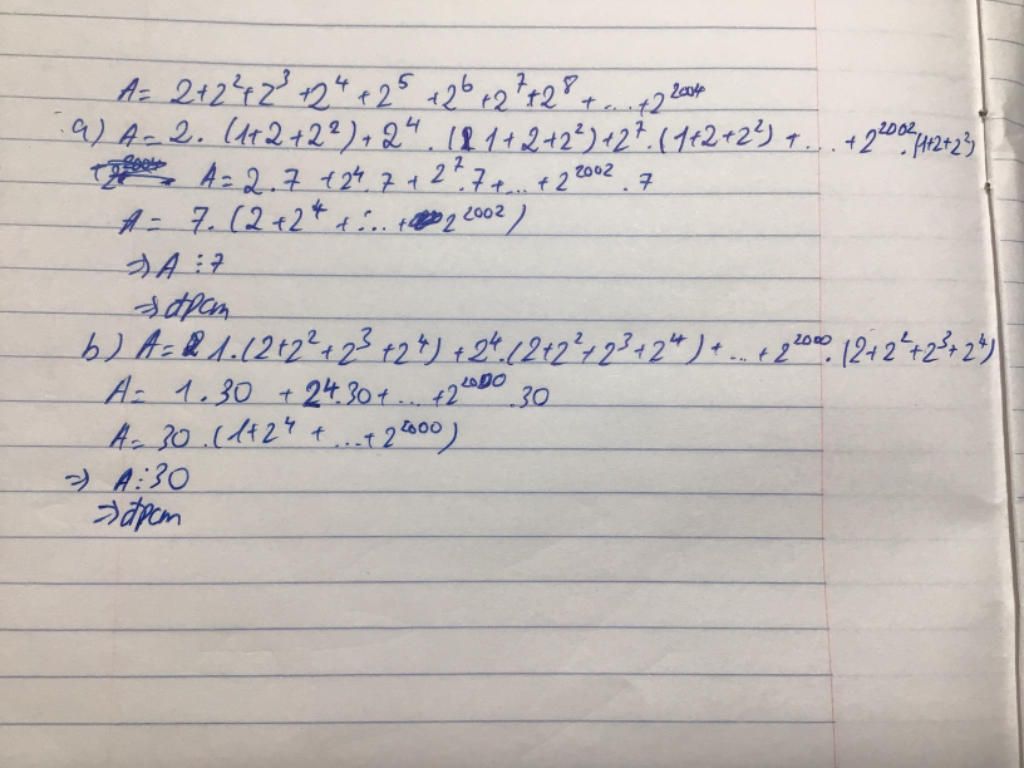 A= 2+2²+2³+2⁴+2⁵+2⁶+2⁷+2⁸+...+2²⁰⁰⁴
a) A=2.(1+2+2²)+2⁴.(1+2+2²)+2⁷.(1+2+2²)+...+2²⁰⁰².(1+2+2²)
A=2.7+2⁴.7+2⁷.7+...+2²⁰⁰².7
A= 7.(2+2⁴+...+2²⁰⁰²)
⇒A⋮7
⇒đpcm
b) A=1.(2+2²+2³+2⁴)+2⁴.(2+2²+2³+2⁴)+...+2²⁰⁰⁰.(2+2²+2³+2⁴)
A= 1.30 +2⁴.30+...+2²⁰⁰⁰.30
A=30.(1+2⁴+...+2²⁰⁰⁰)
⇒ A⋮30
⇒đpcm